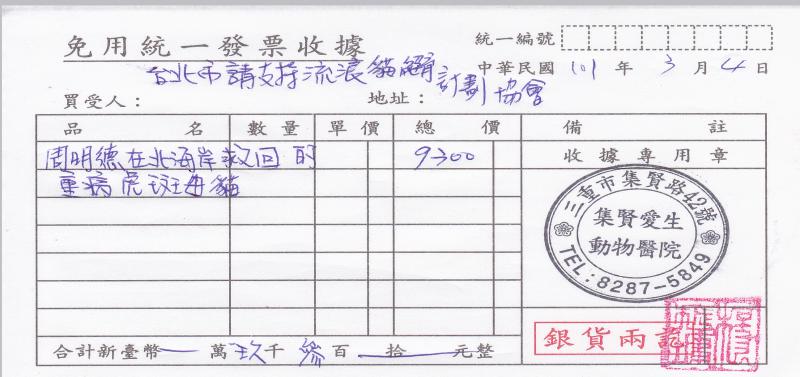 免用統一發票收據
統一編號
台北市請支持流浪貓絕育計劃協會
中華民國 101 年 3 月 4 日
買受人：
地址：
品名 數量 單價 總價 備註
周明德在北海岸救回的 9300
重病虎斑母貓
收據專用章
三重市集賢路42號
集賢愛生
動物醫院
TEL:8287-5849
銀貨兩訖
合計新臺幣 萬 玖 千 參 百 拾 元整